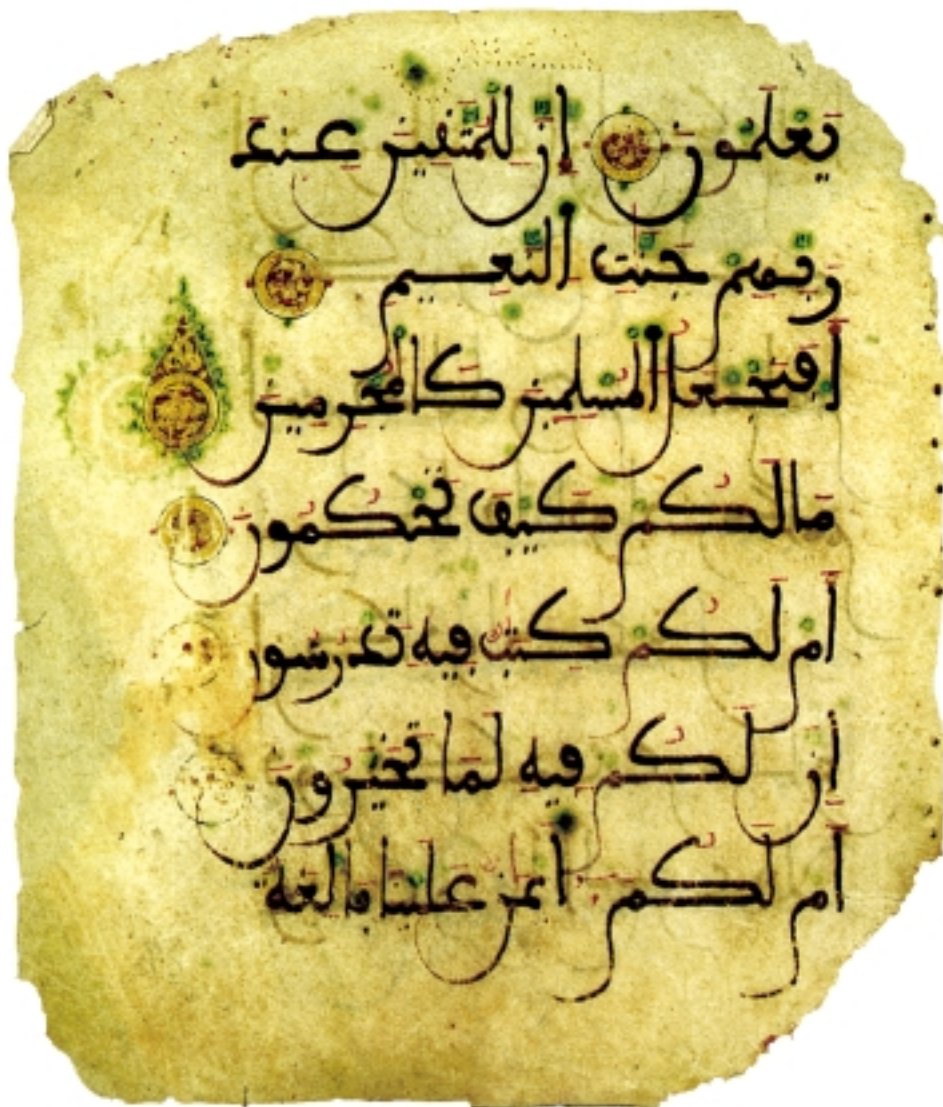 يعلمون ان للمتقين عند
ربهم جنت النعيم
افنجعل المسلمين كالمجرمين
ما لكم كيف تحكمون
ام لكم كتب فيه تدرسون
ان لكم فيه لما تخيرون
ام لكم ايمن علينا بالغة